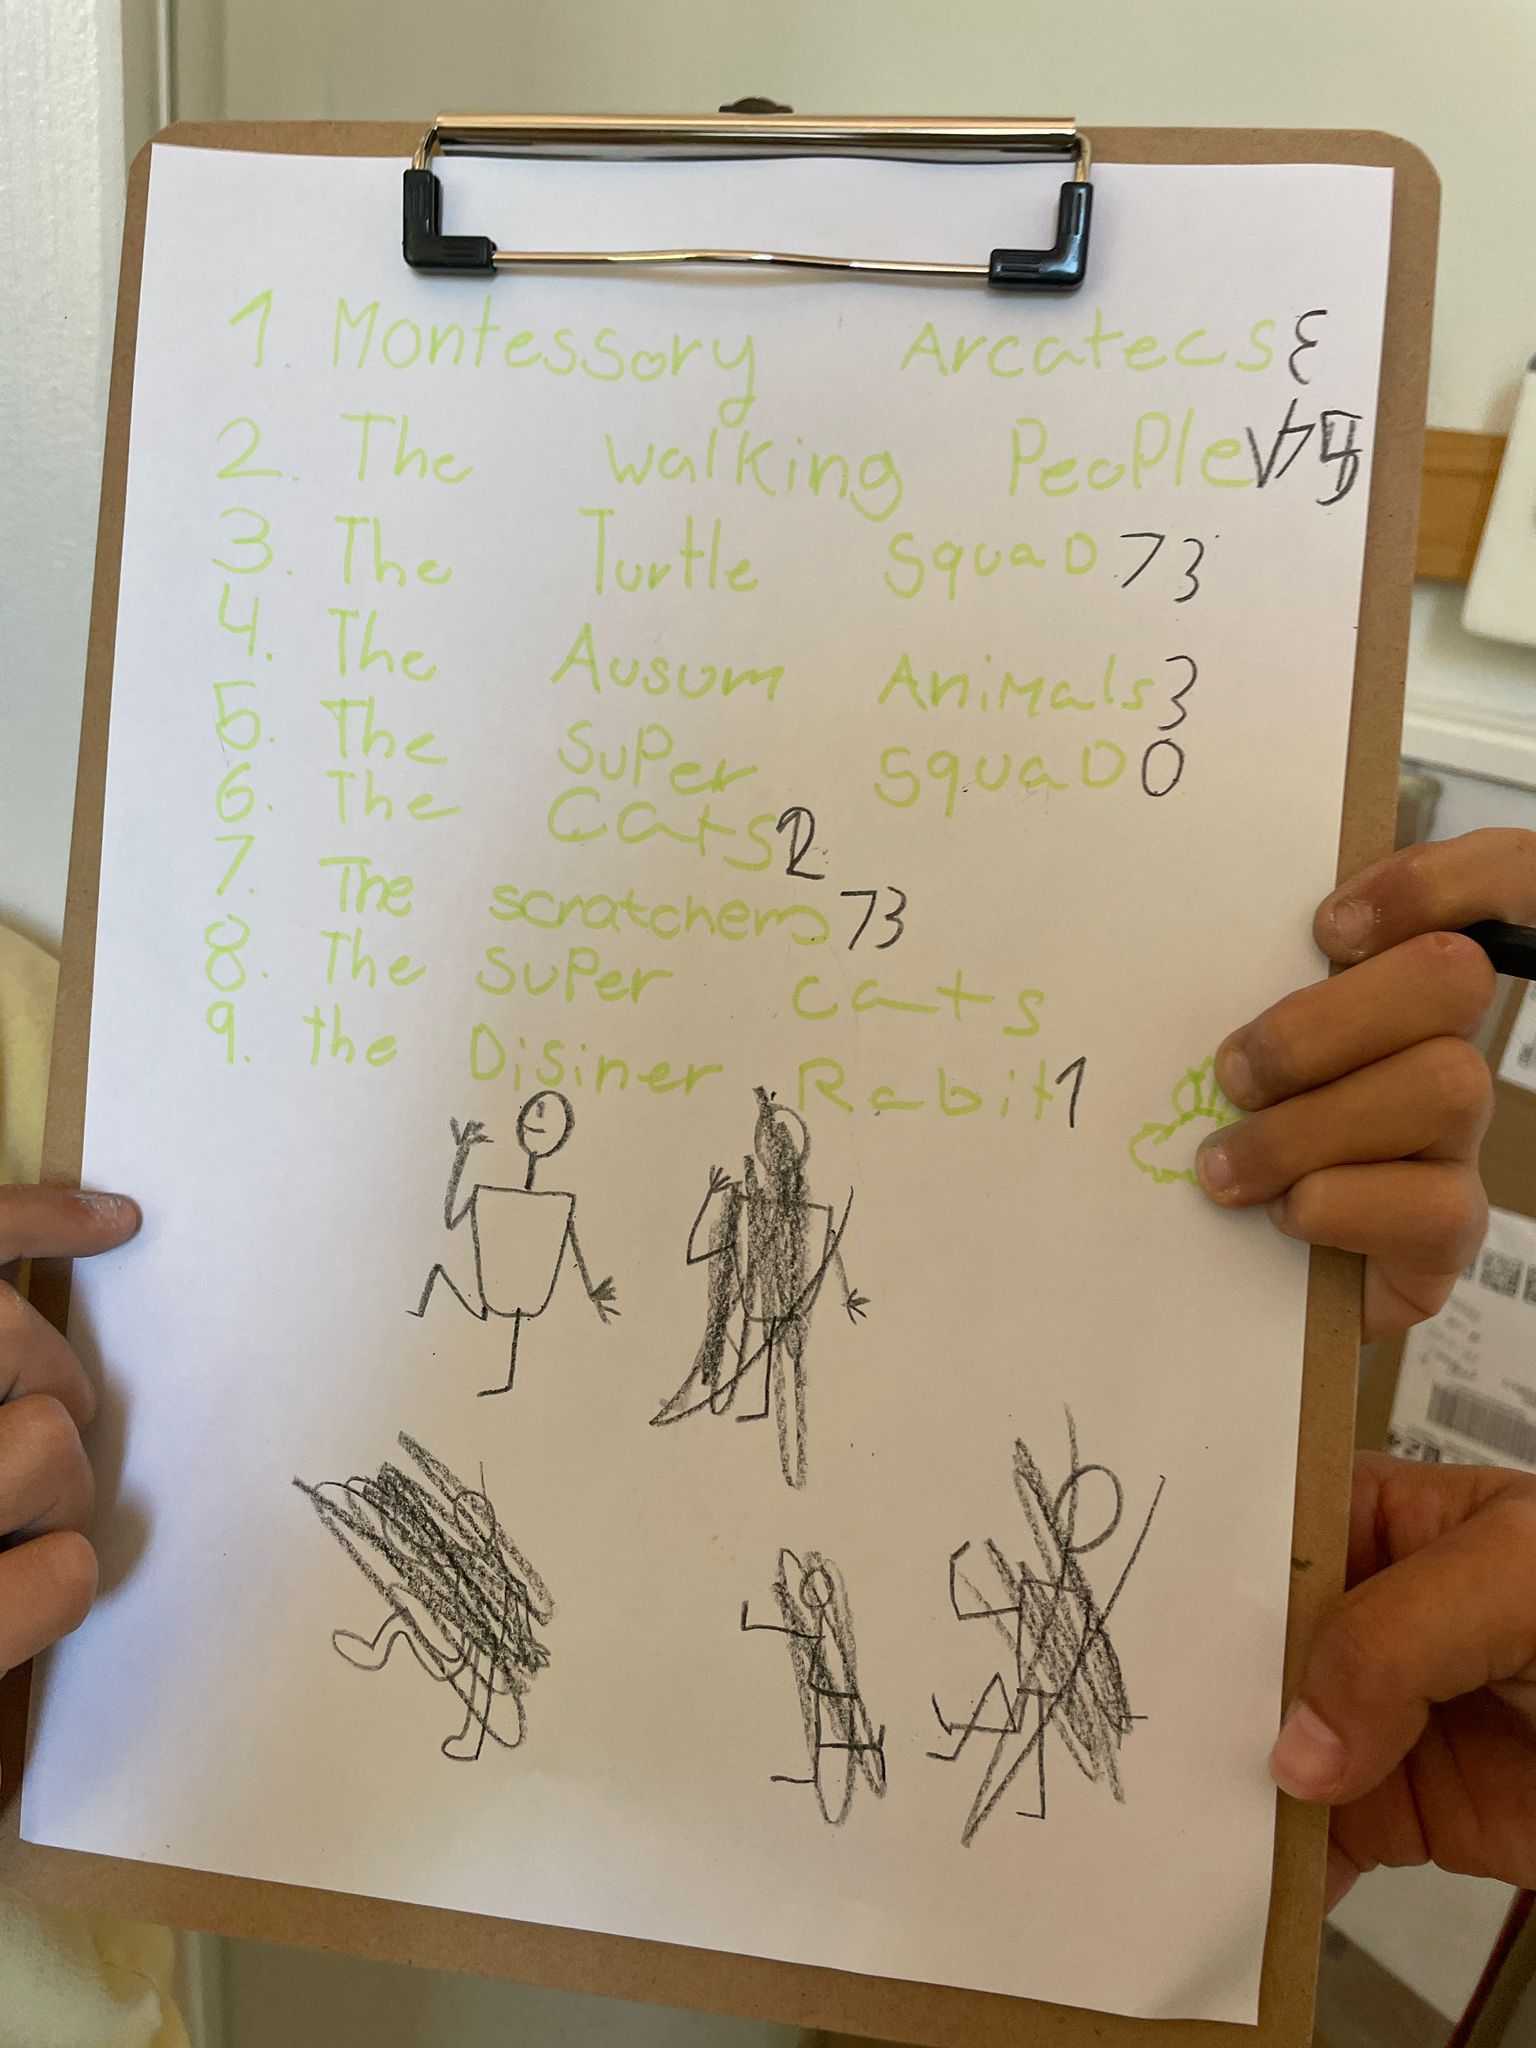 1. Montessory Arcatecs ε
2. The walking People
3. The Turtle squaD 73
4. The Ausum Animals 3
5. The SuPer squaD 0
6. The Cats 2
7. The scratchers 73
8. The SuPer cats
9. the Disiner Rabit 1